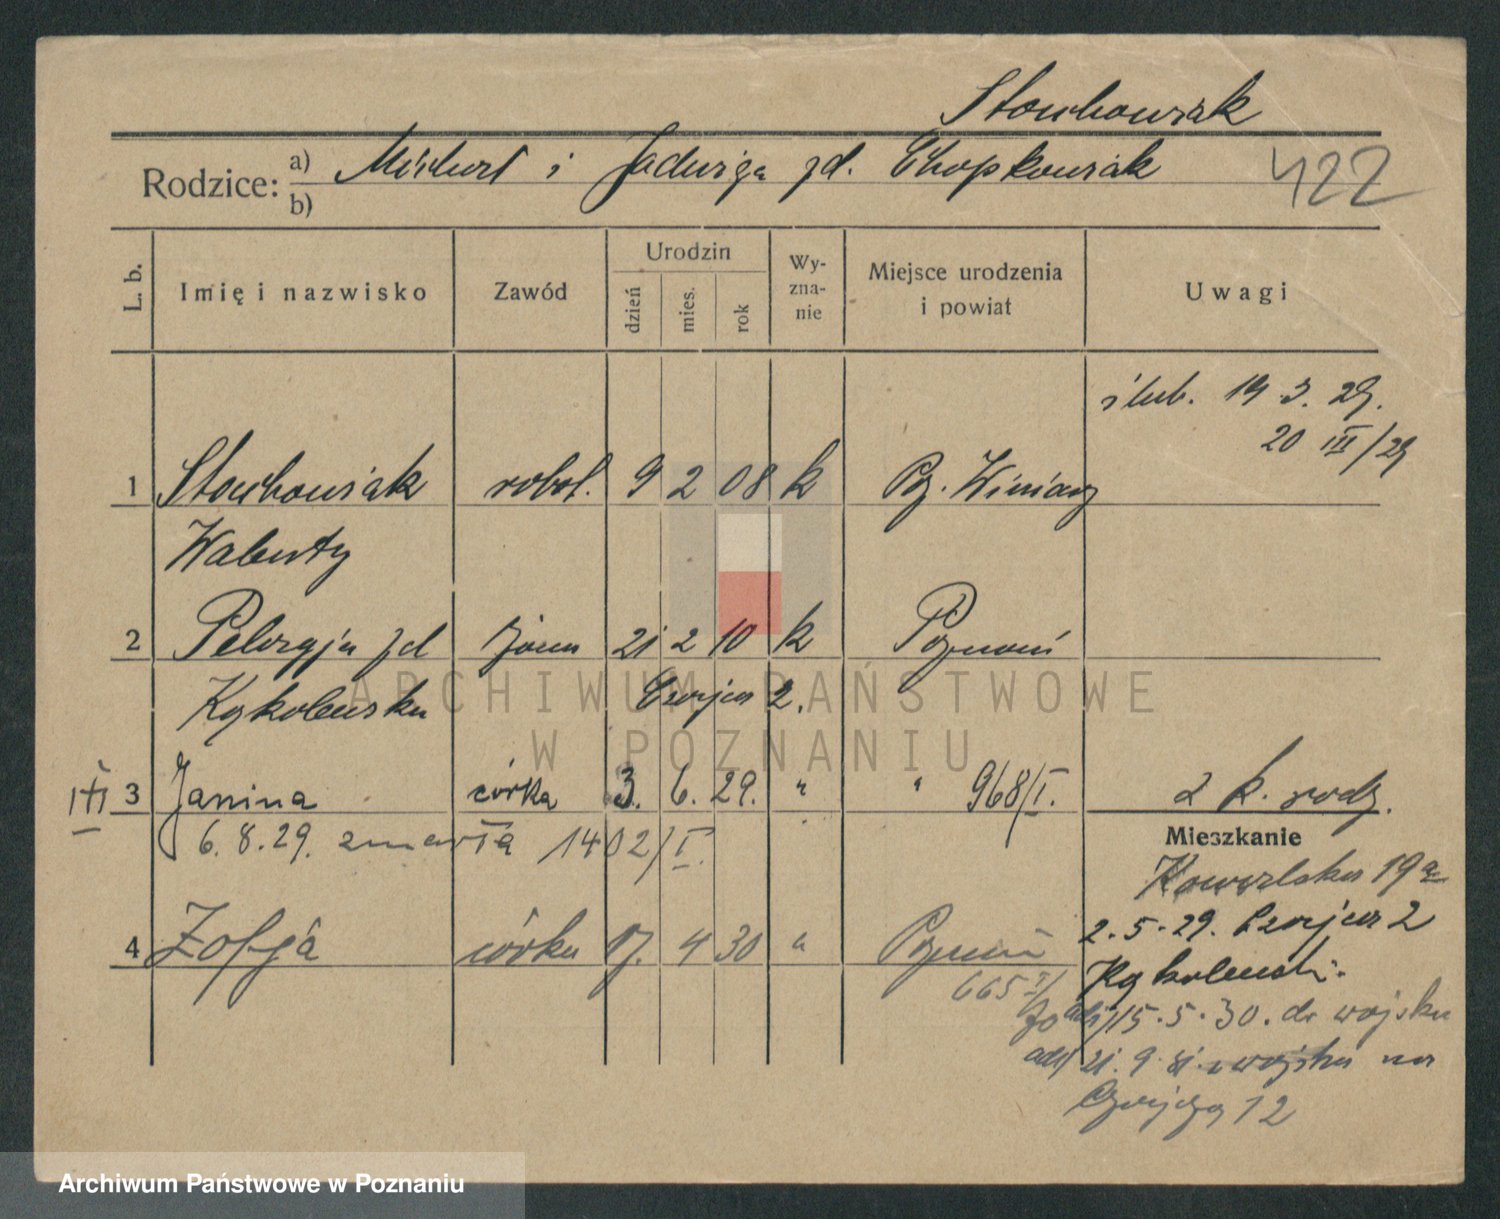 Stachowiak
Rodzice: a) Michał i Jadwiga zd. Chopkowiak
b)
422
L. b.
Imię i nazwisko
Zawód
Urodzin
dzień
mies.
rok
Wy-
zna-
nie
Miejsce urodzenia
i powiat
Uwagi
ślub. 19.3.29.
20 III/29
1 Stachowiak robot. 9 2 08 k Pz. Winiary
Walenty
2 Pelagja zd żona 21 2 10 k Poznań
Kąkolewska Czajcza 2.
3 Janina córka 3. 6. 29. " " 968/I. 2 k. rodz.
6.8.29. zmarła 1402/I.
Mieszkanie
19a
4 Zofja córka 17. 4 30 " Poznań
665 I/
2.5.29. Czajcza 2
Kąkolewski.
15.5.30. do wojska
21.9.31 z wojska na
12
ARCHIWUM PAŃSTWOWE
W POZNANIU
Archiwum Państwowe w Poznaniu